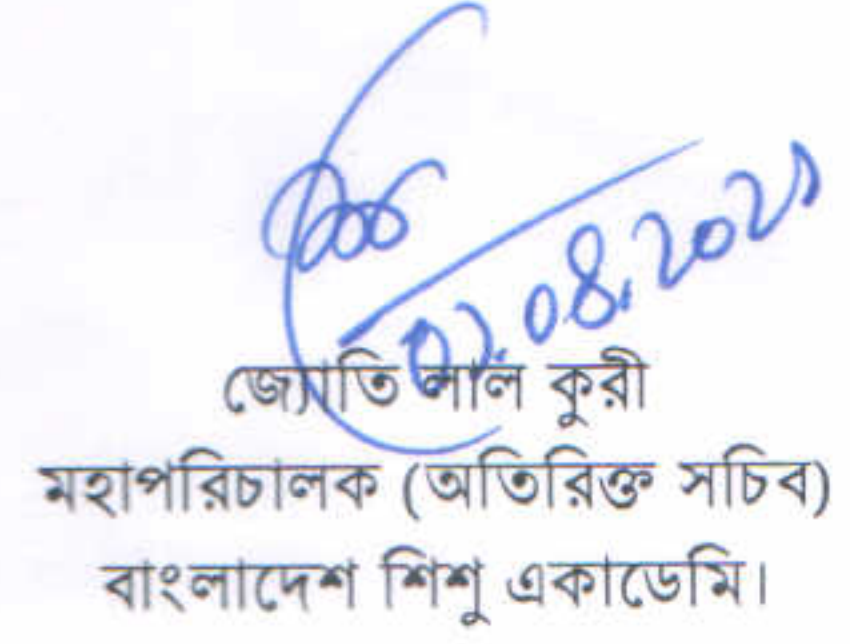 ০১.০৪.২০২১
জ্যোতি লাল কুরী
মহাপরিচালক (অতিরিক্ত সচিব)
বাংলাদেশ শিশু একাডেমি।